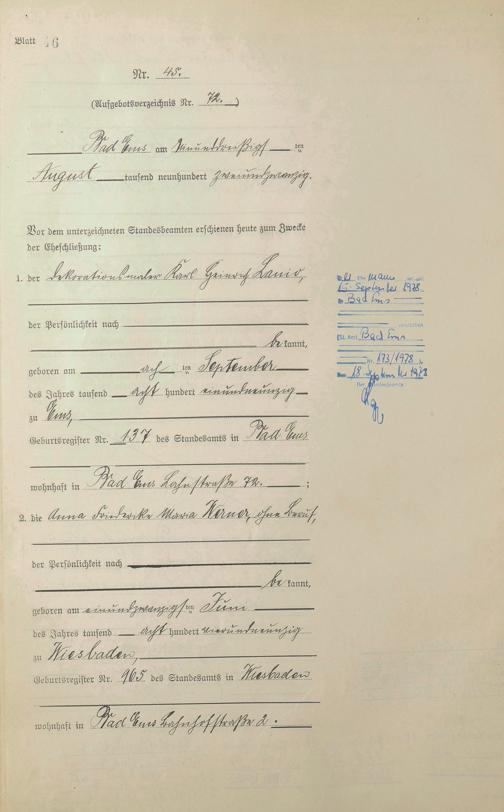 Blatt 46
Nr. 45.
(Aufgebotsverzeichnis Nr. 72.)
Bad Ems am einunddreißigsten
August tausend neunhundert zweiundzwanzig.
Vor dem unterzeichneten Standesbeamten erschienen heute zum Zwecke
der Eheschließung:
1. der Dekorationsmaler Karl Heinrich Lanio,
der Persönlichkeit nach
bekannt,
geboren am achten September
des Jahres tausend acht hundert einundneunzig
zu Ems,
Geburtsregister Nr. 137 des Standesamts in Bad Ems
wohnhaft in Bad Ems Lahnstraße 72. ;
2. die Anna Friedericke Maria Werner, ohne Beruf,
der Persönlichkeit nach
bekannt,
geboren am einundzwanzigsten Juni
des Jahres tausend acht hundert vierundneunzig
zu Wiesbaden,
Geburtsregister Nr. 965 des Standesamts in Wiesbaden
wohnhaft in Bad Ems Bahnhofstraße 2.
Mann
September 1978
in Bad Ems
Bad Ems
Nr. 173/1978
18. September 1978